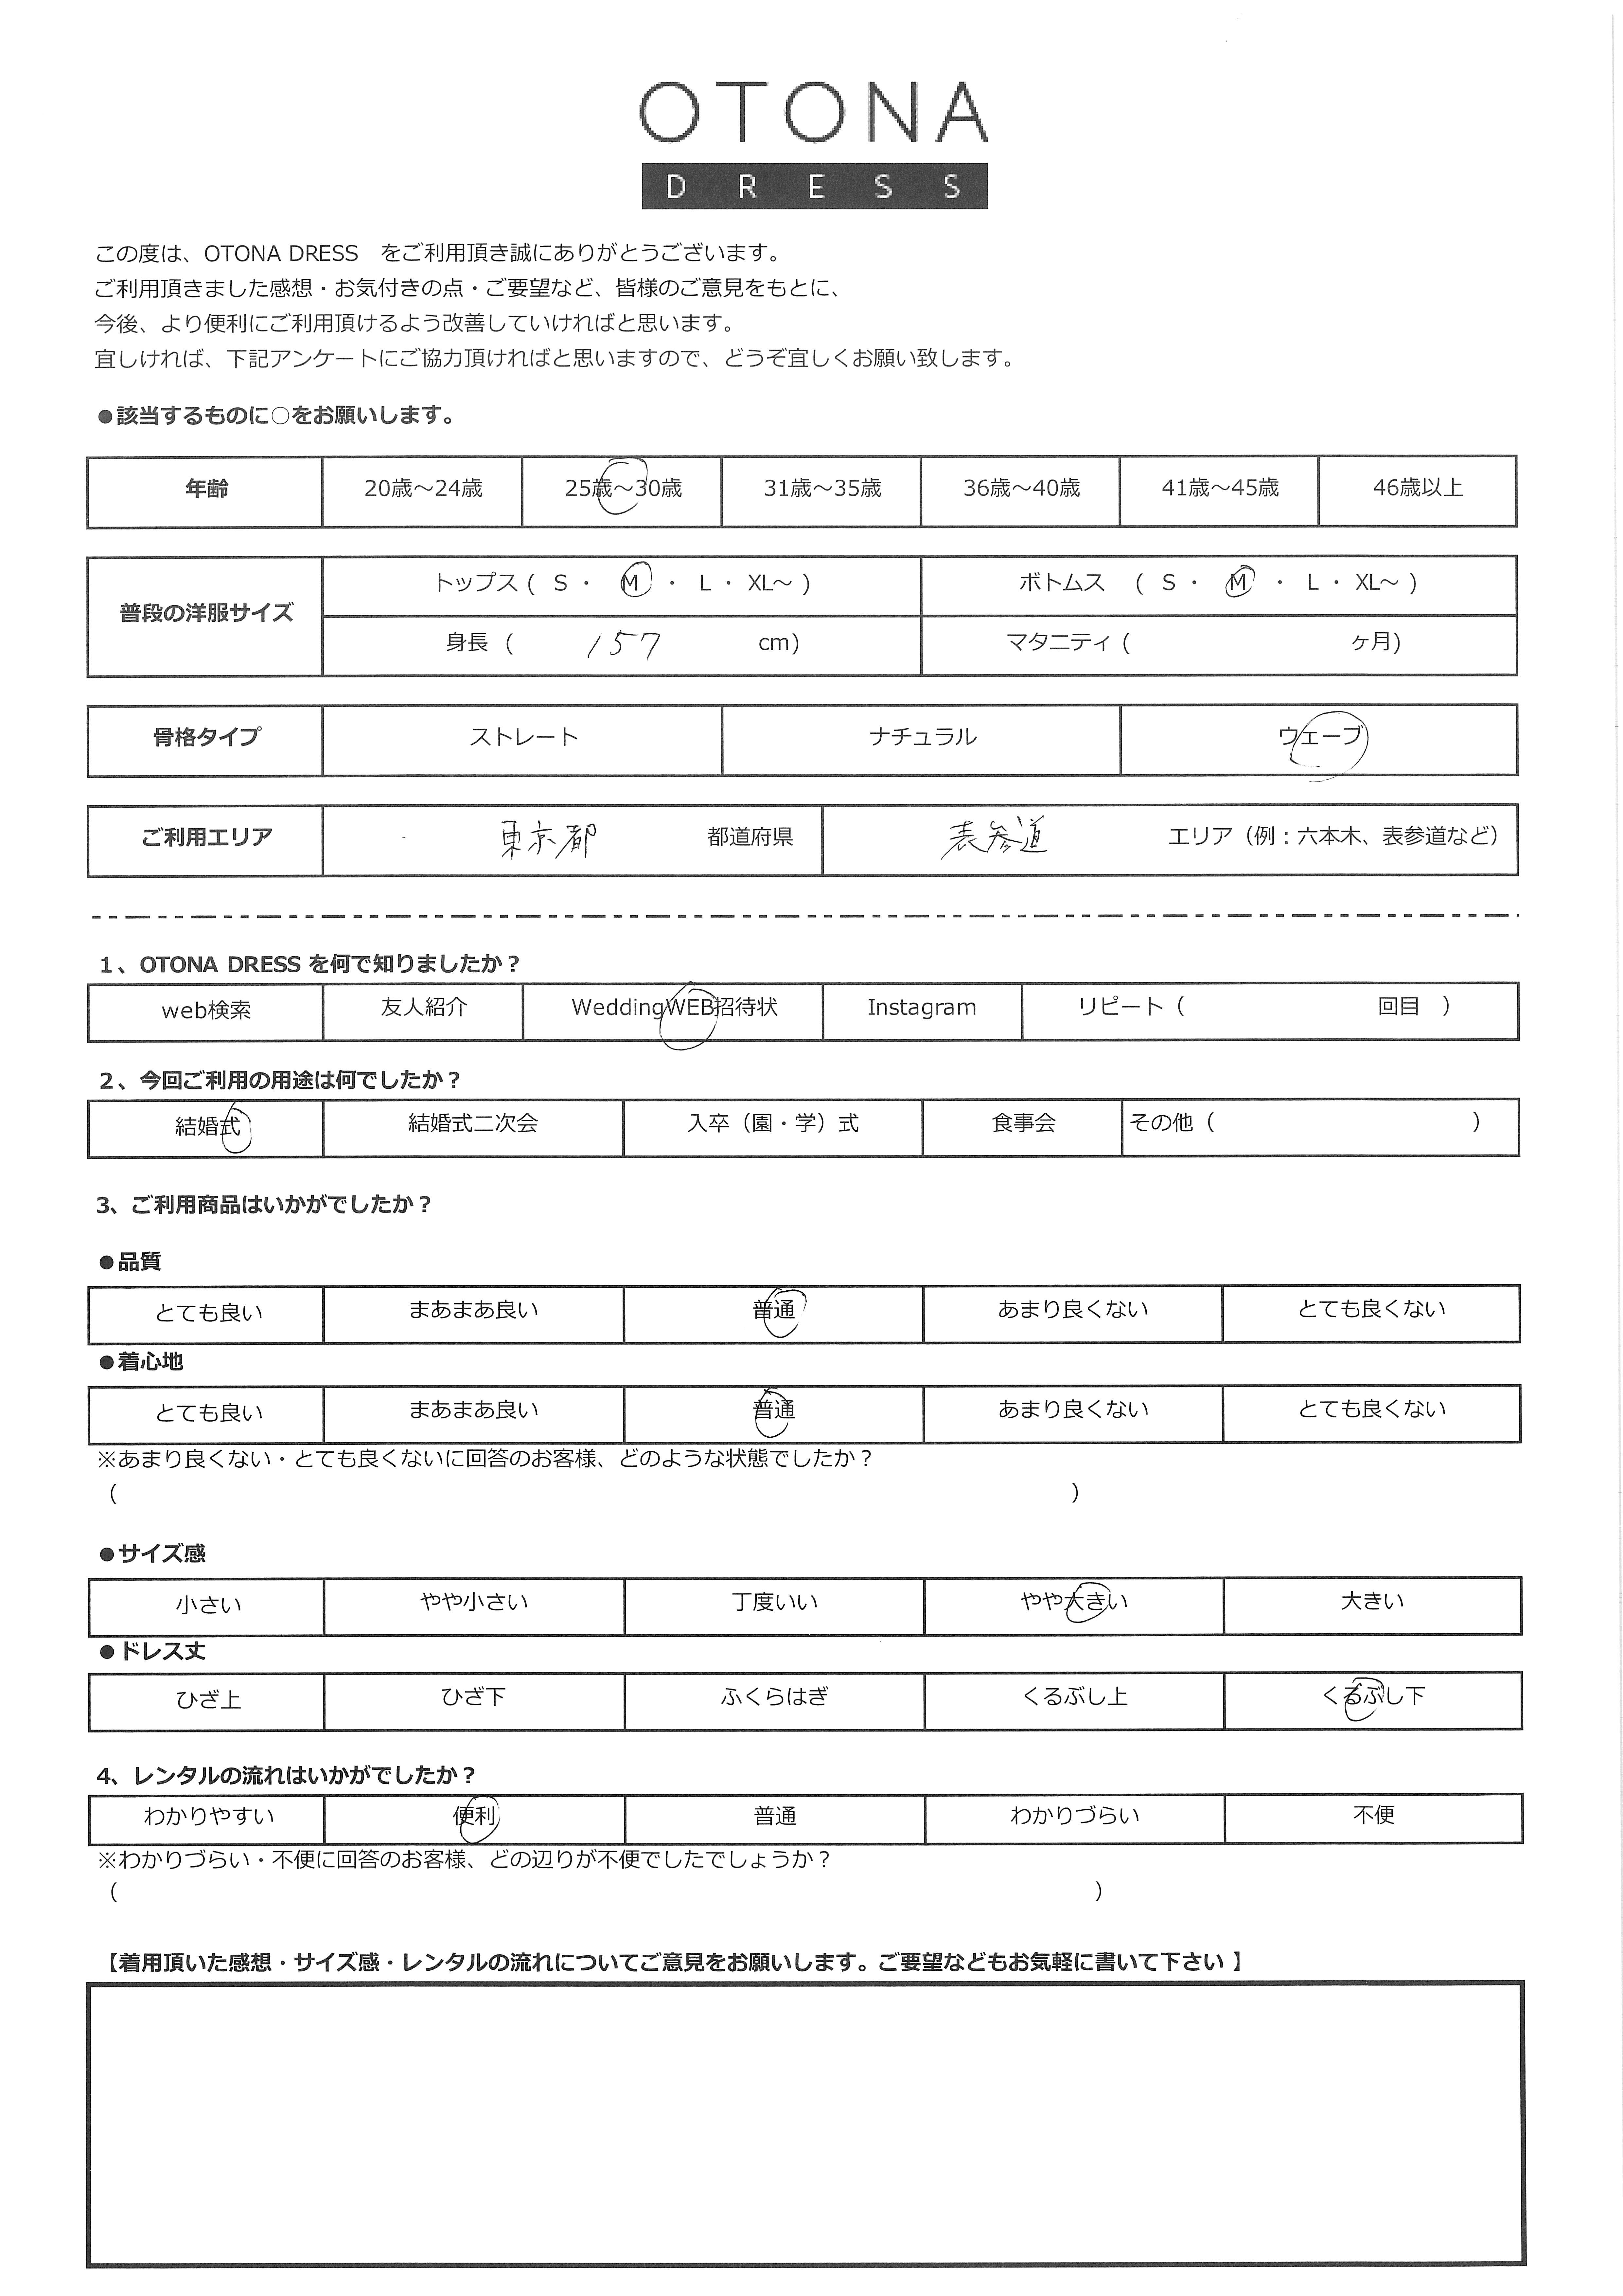 OTONA
DRESS
この度は、OTONA DRESS　をご利用頂き誠にありがとうございます。
ご利用頂きました感想・お気付きの点・ご要望など、皆様のご意見をもとに、
今後、より便利にご利用頂けるよう改善していければと思います。
宜しければ、下記アンケートにご協力頂ければと思いますので、どうぞ宜しくお願い致します。
●該当するものに○をお願いします。
年齢 20歳～24歳 25歳～30歳 31歳～35歳 36歳～40歳 41歳～45歳 46歳以上
普段の洋服サイズ
トップス ( S ・ M ・ L ・ XL～ ) ボトムス ( S ・ M ・ L ・ XL～ )
身長 ( 157 cm) マタニティ ( ヶ月)
骨格タイプ ストレート ナチュラル ウェーブ
ご利用エリア 東京都 都道府県 表参道 エリア（例：六本木、表参道など）
1、OTONA DRESS を何で知りましたか？
web検索 友人紹介 WeddingWEB招待状 Instagram リピート（ 回目 ）
2、今回ご利用の用途は何でしたか？
結婚式 結婚式二次会 入卒（園・学）式 食事会 その他（ ）
3、ご利用商品はいかがでしたか？
●品質
とても良い まあまあ良い 普通 あまり良くない とても良くない
●着心地
とても良い まあまあ良い 普通 あまり良くない とても良くない
※あまり良くない・とても良くないに回答のお客様、どのような状態でしたか？
（ ）
●サイズ感
小さい やや小さい 丁度いい やや大きい 大きい
●ドレス丈
ひざ上 ひざ下 ふくらはぎ くるぶし上 くるぶし下
4、レンタルの流れはいかがでしたか？
わかりやすい 便利 普通 わかりづらい 不便
※わかりづらい・不便に回答のお客様、どの辺りが不便でしたでしょうか？
（ ）
【着用頂いた感想・サイズ感・レンタルの流れについてご意見をお願いします。ご要望などもお気軽に書いて下さい 】